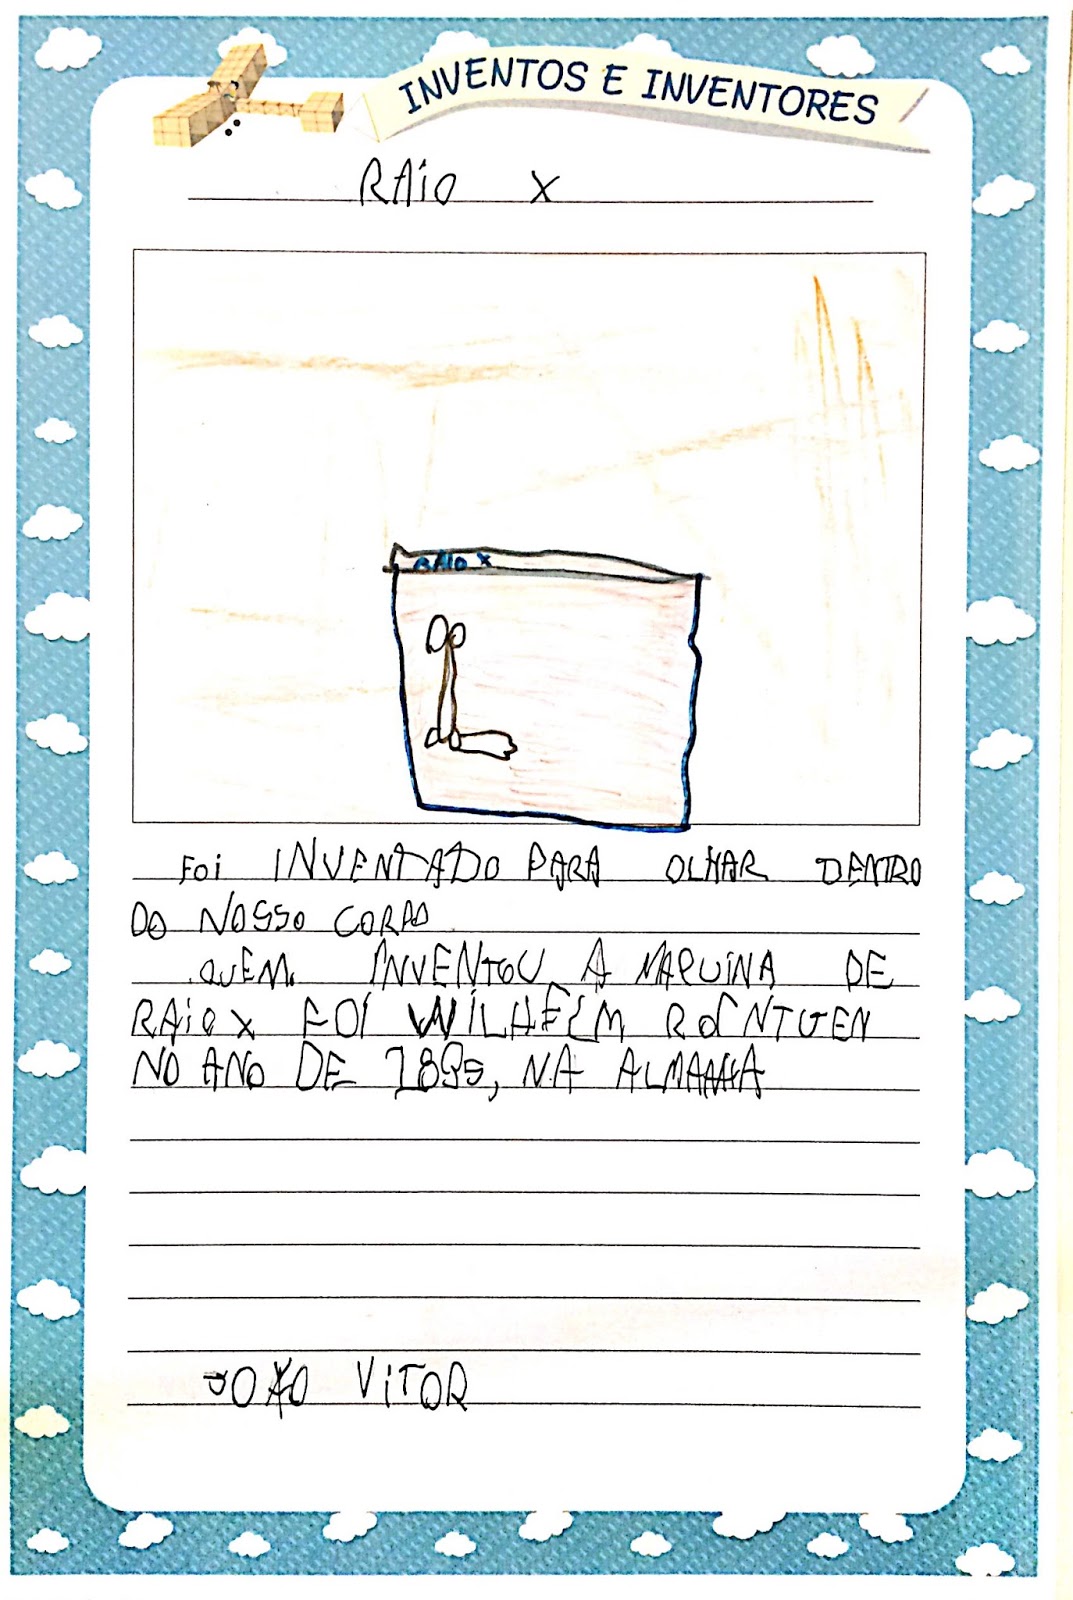 INVENTOS E INVENTORES
RAIO X
RAIO X
FOI INVENTADO PARA OLHAR DENTRO
DO NOSSO CORPO
QUEM INVENTOU A MAQUINA DE
RAIO X FOI WILHELM ROENTGEN
NO ANO DE 1895, NA ALMANHA
JOÃO VITOR